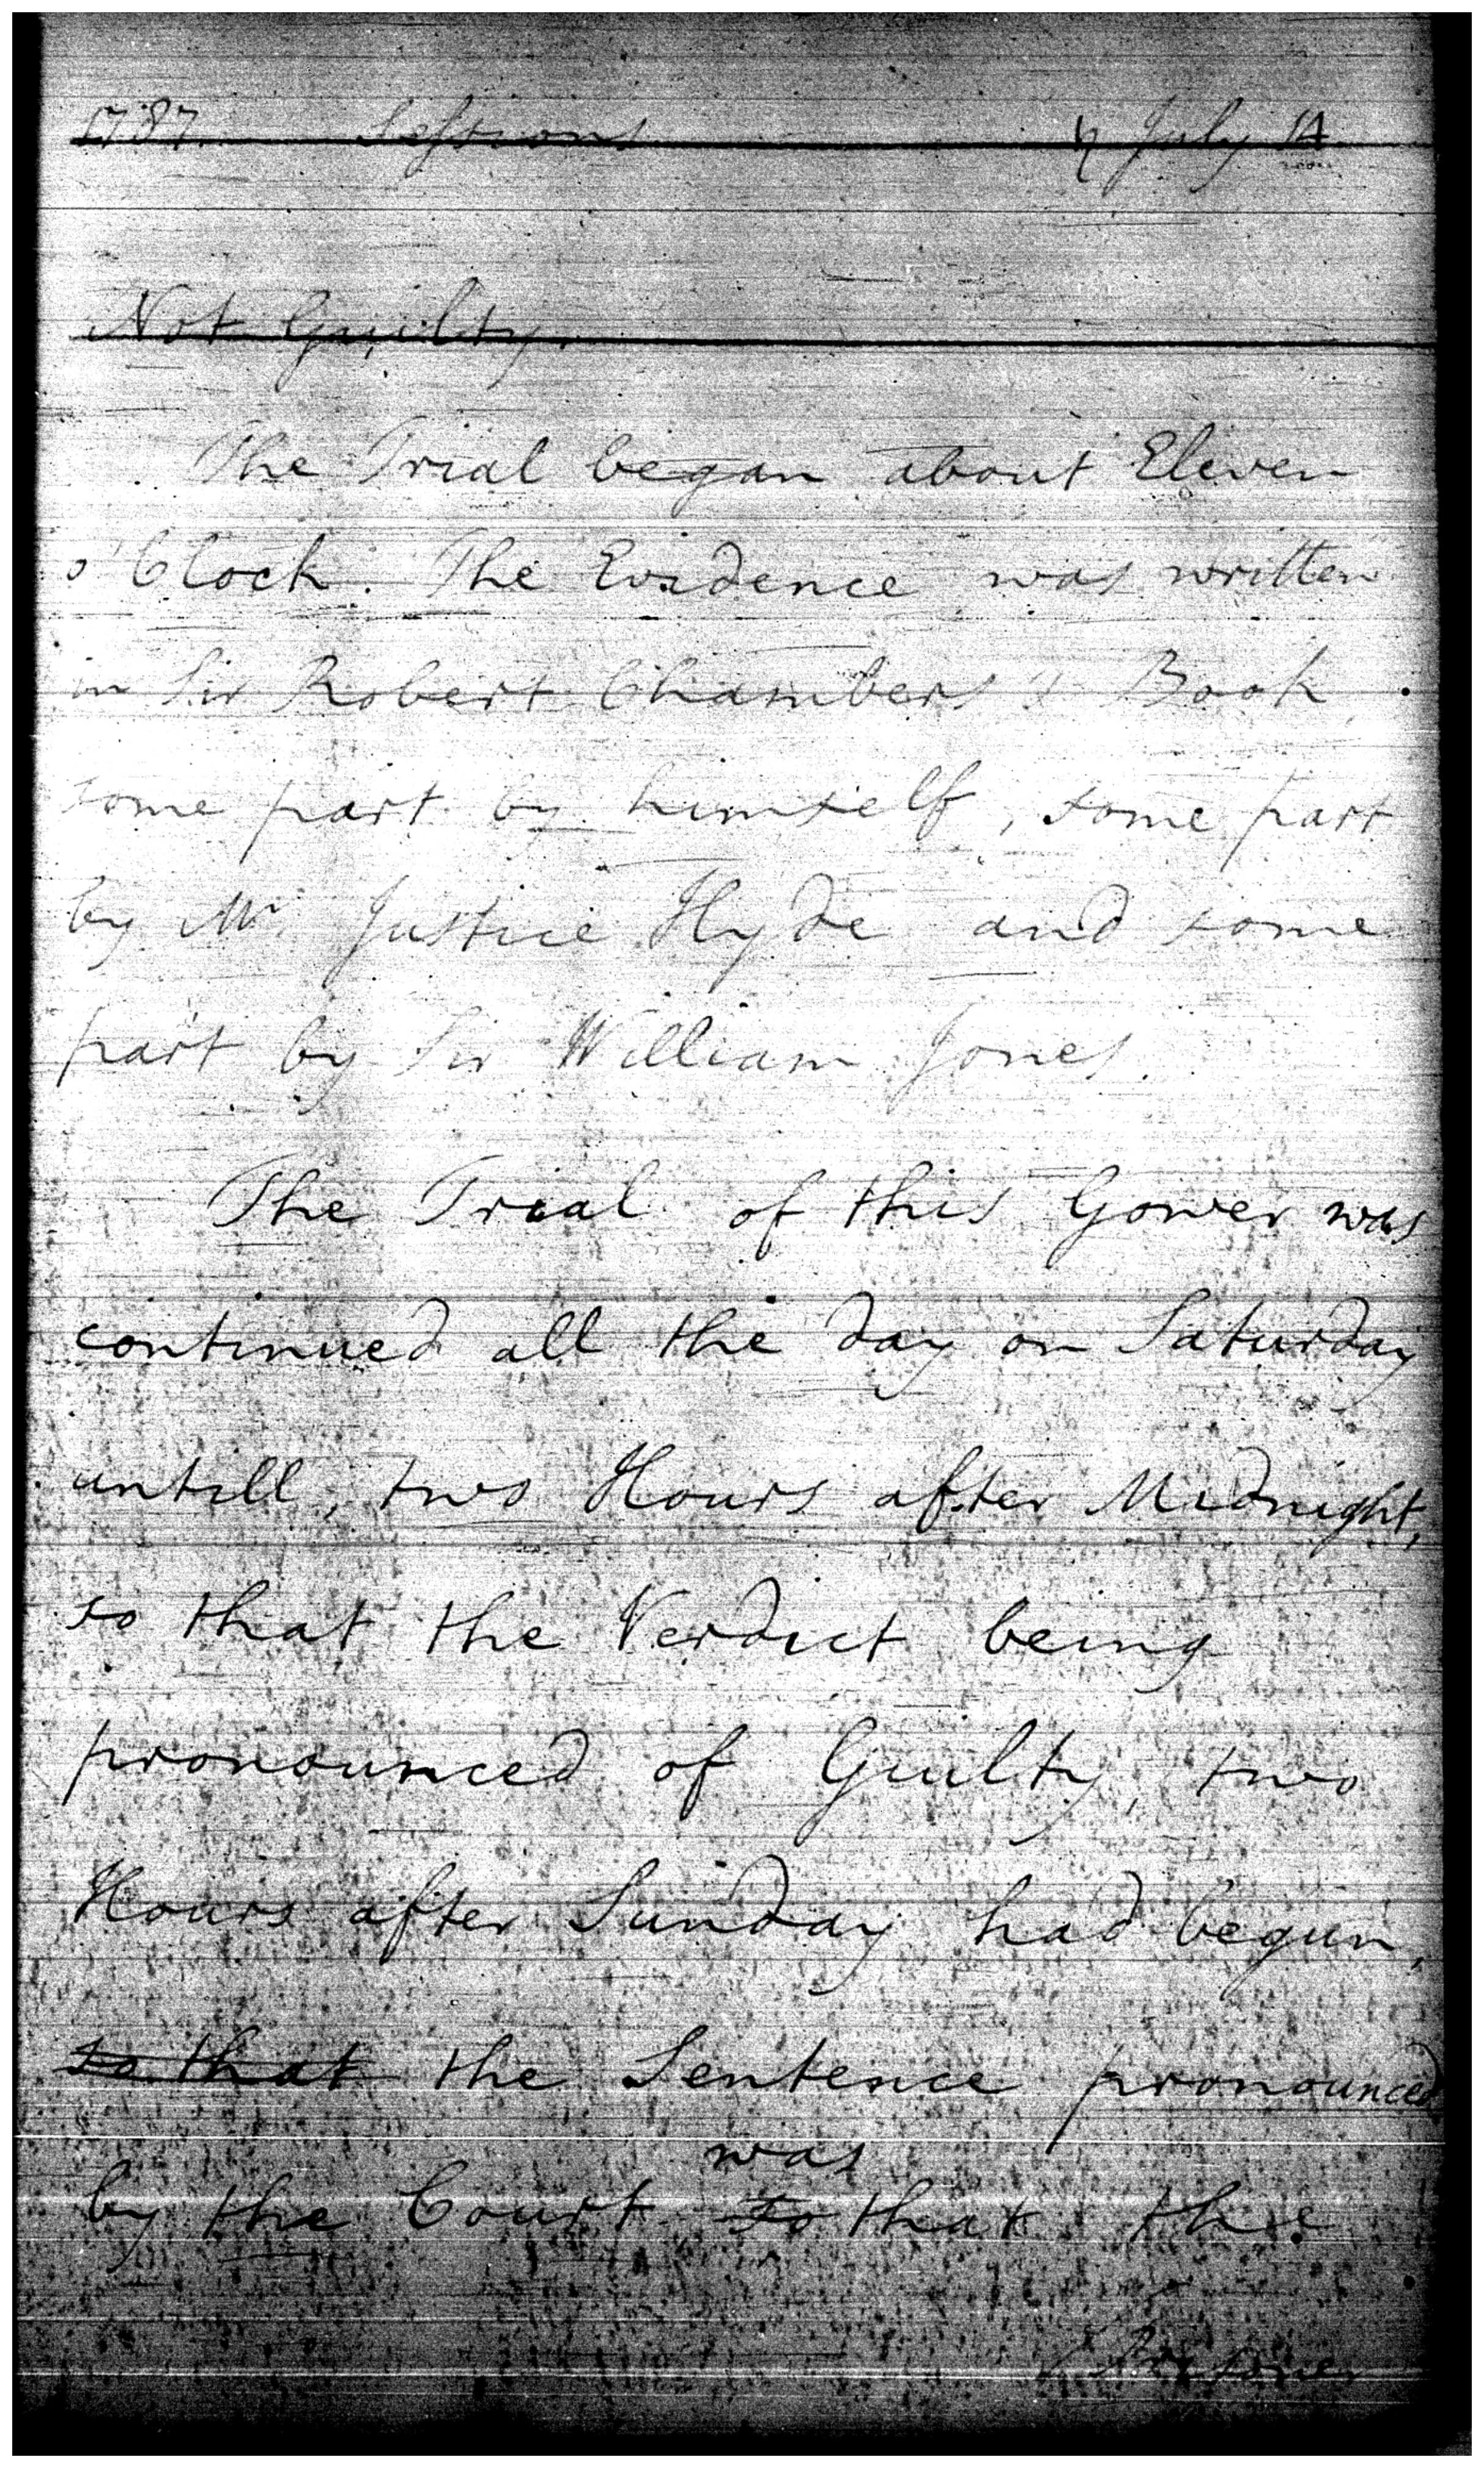 1787. Sessions ♄ July 14
Not Guilty.
The Trial began about Eleven
o'Clock. The Evidence was written
in Sir Robert Chambers's Book
some part by himself, some part
by Mr. Justice Hyde and some
part by Sir William Jones.
The Trial of this Gower was
continued all the day on Saturday
untill, two Hours after Midnight,
so that the Verdict being
pronounced of Guilty, two
Hours after Sunday had begun,
so that the Sentence pronounced
was
by the Court so that the
Prisoner